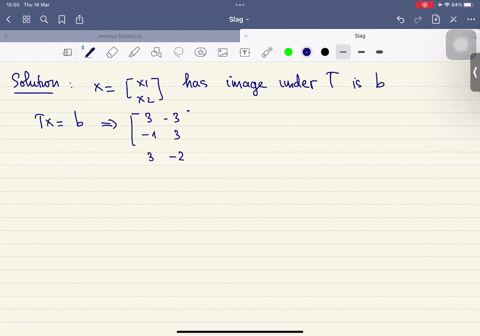 10:00 Thu 16 Mar
84%
Slag
Untitled Notebook
Slag
Solution : x = [x1
x2] has image under T is b
Tx = b ⇒ [3 -3
-1 3
3 -2